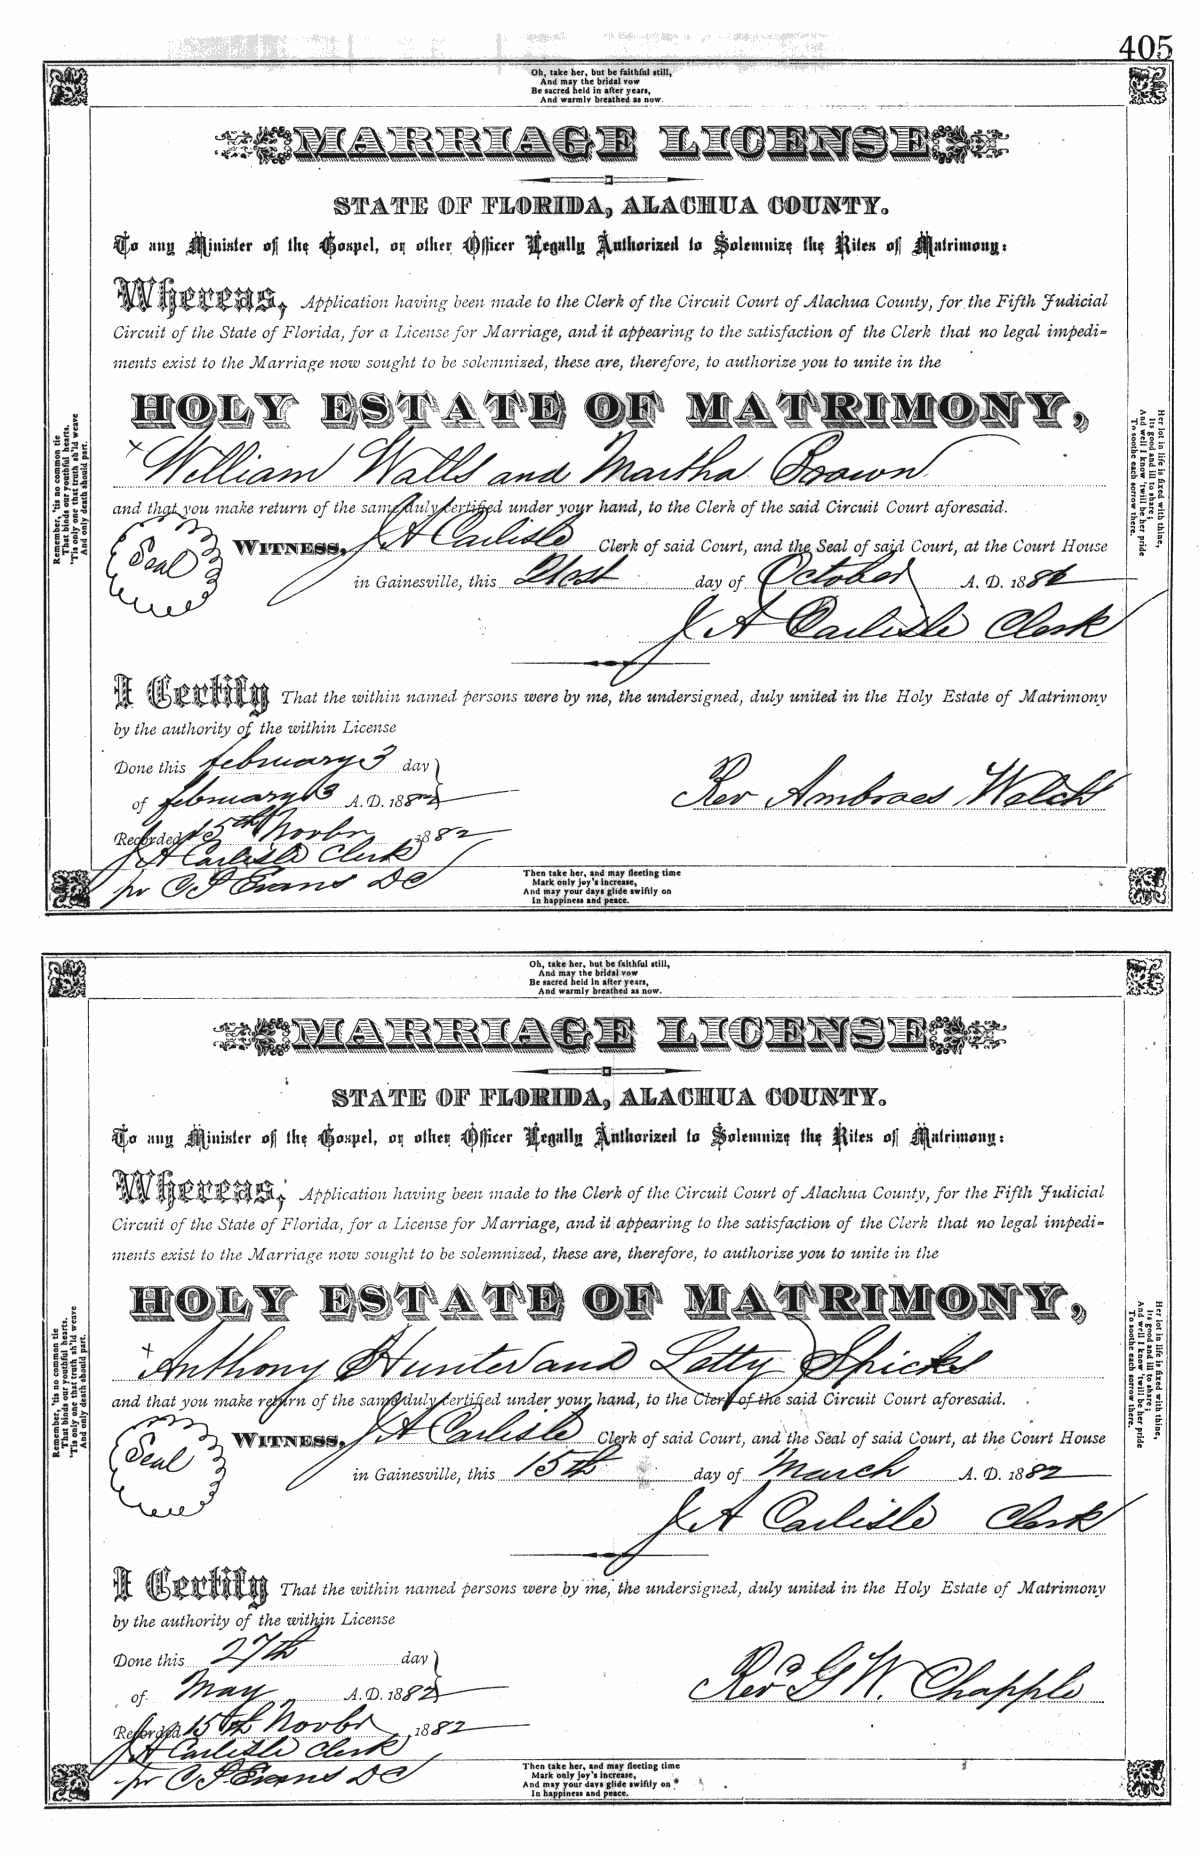 405
Oh, take her, but be faithful still,
And may the bridal vow
Be sacred held in after years,
And warmly breathed as now.
MARRIAGE LICENSE
STATE OF FLORIDA, ALACHUA COUNTY.
To any Minister of the Gospel, or other Officer Legally Authorized to Solemnize the Rites of Matrimony:
Whereas, Application having been made to the Clerk of the Circuit Court of Alachua County, for the Fifth Judicial
Circuit of the State of Florida, for a License for Marriage, and it appearing to the satisfaction of the Clerk that no legal impedi-
ments exist to the Marriage now sought to be solemnized, these are, therefore, to authorize you to unite in the
HOLY ESTATE OF MATRIMONY,
x William Watts and Martha Brown
and that you make return of the same duly certified under your hand, to the Clerk of the said Circuit Court aforesaid.
Seal
WITNESS, J A Carlisle Clerk of said Court, and the Seal of said Court, at the Court House
in Gainesville, this 21st day of October A. D. 188
J A Carlisle Clerk
I Certify That the within named persons were by me, the undersigned, duly united in the Holy Estate of Matrimony
by the authority of the within License
Done this February 3 day
of February 3 A. D. 1882
Rev Ambroes Welch
Recorded 15th Novbr 1882
J A Carlisle Clerk
pr C S Evans D C
Remember, 'tis no common tie
That binds our youthful hearts.
'Tis only one that truth sh'ld weave
And only death should part.
Her lot in life is fixed with thine,
Its good and ill to share;
And well I know 'twill be her pride
To soothe each sorrow there.
Then take her, and may fleeting time
Mark only joy's increase,
And may your days glide swiftly on
In happiness and peace.
Oh, take her, but be faithful still,
And may the bridal vow
Be sacred held in after years,
And warmly breathed as now.
MARRIAGE LICENSE
STATE OF FLORIDA, ALACHUA COUNTY.
To any Minister of the Gospel, or other Officer Legally Authorized to Solemnize the Rites of Matrimony:
Whereas, Application having been made to the Clerk of the Circuit Court of Alachua County, for the Fifth Judicial
Circuit of the State of Florida, for a License for Marriage, and it appearing to the satisfaction of the Clerk that no legal impedi-
ments exist to the Marriage now sought to be solemnized, these are, therefore, to authorize you to unite in the
HOLY ESTATE OF MATRIMONY,
x Anthony Hunter and Letty Spicks
and that you make return of the same duly certified under your hand, to the Clerk of the said Circuit Court aforesaid.
Seal
WITNESS, J A Carlisle Clerk of said Court, and the Seal of said Court, at the Court House
in Gainesville, this 15th day of March A. D. 1882
J A Carlisle Clerk
I Certify That the within named persons were by me, the undersigned, duly united in the Holy Estate of Matrimony
by the authority of the within License
Done this 27th day
of May A. D. 1882
Rev G W. Chapple
Recorded 15th Novbr 1882
J A Carlisle Clerk
pr C S Evans D C
Remember, 'tis no common tie
That binds our youthful hearts.
'Tis only one that truth sh'ld weave
And only death should part.
Her lot in life is fixed with thine,
Its good and ill to share;
And well I know 'twill be her pride
To soothe each sorrow there.
Then take her, and may fleeting time
Mark only joy's increase,
And may your days glide swiftly on
In happiness and peace.